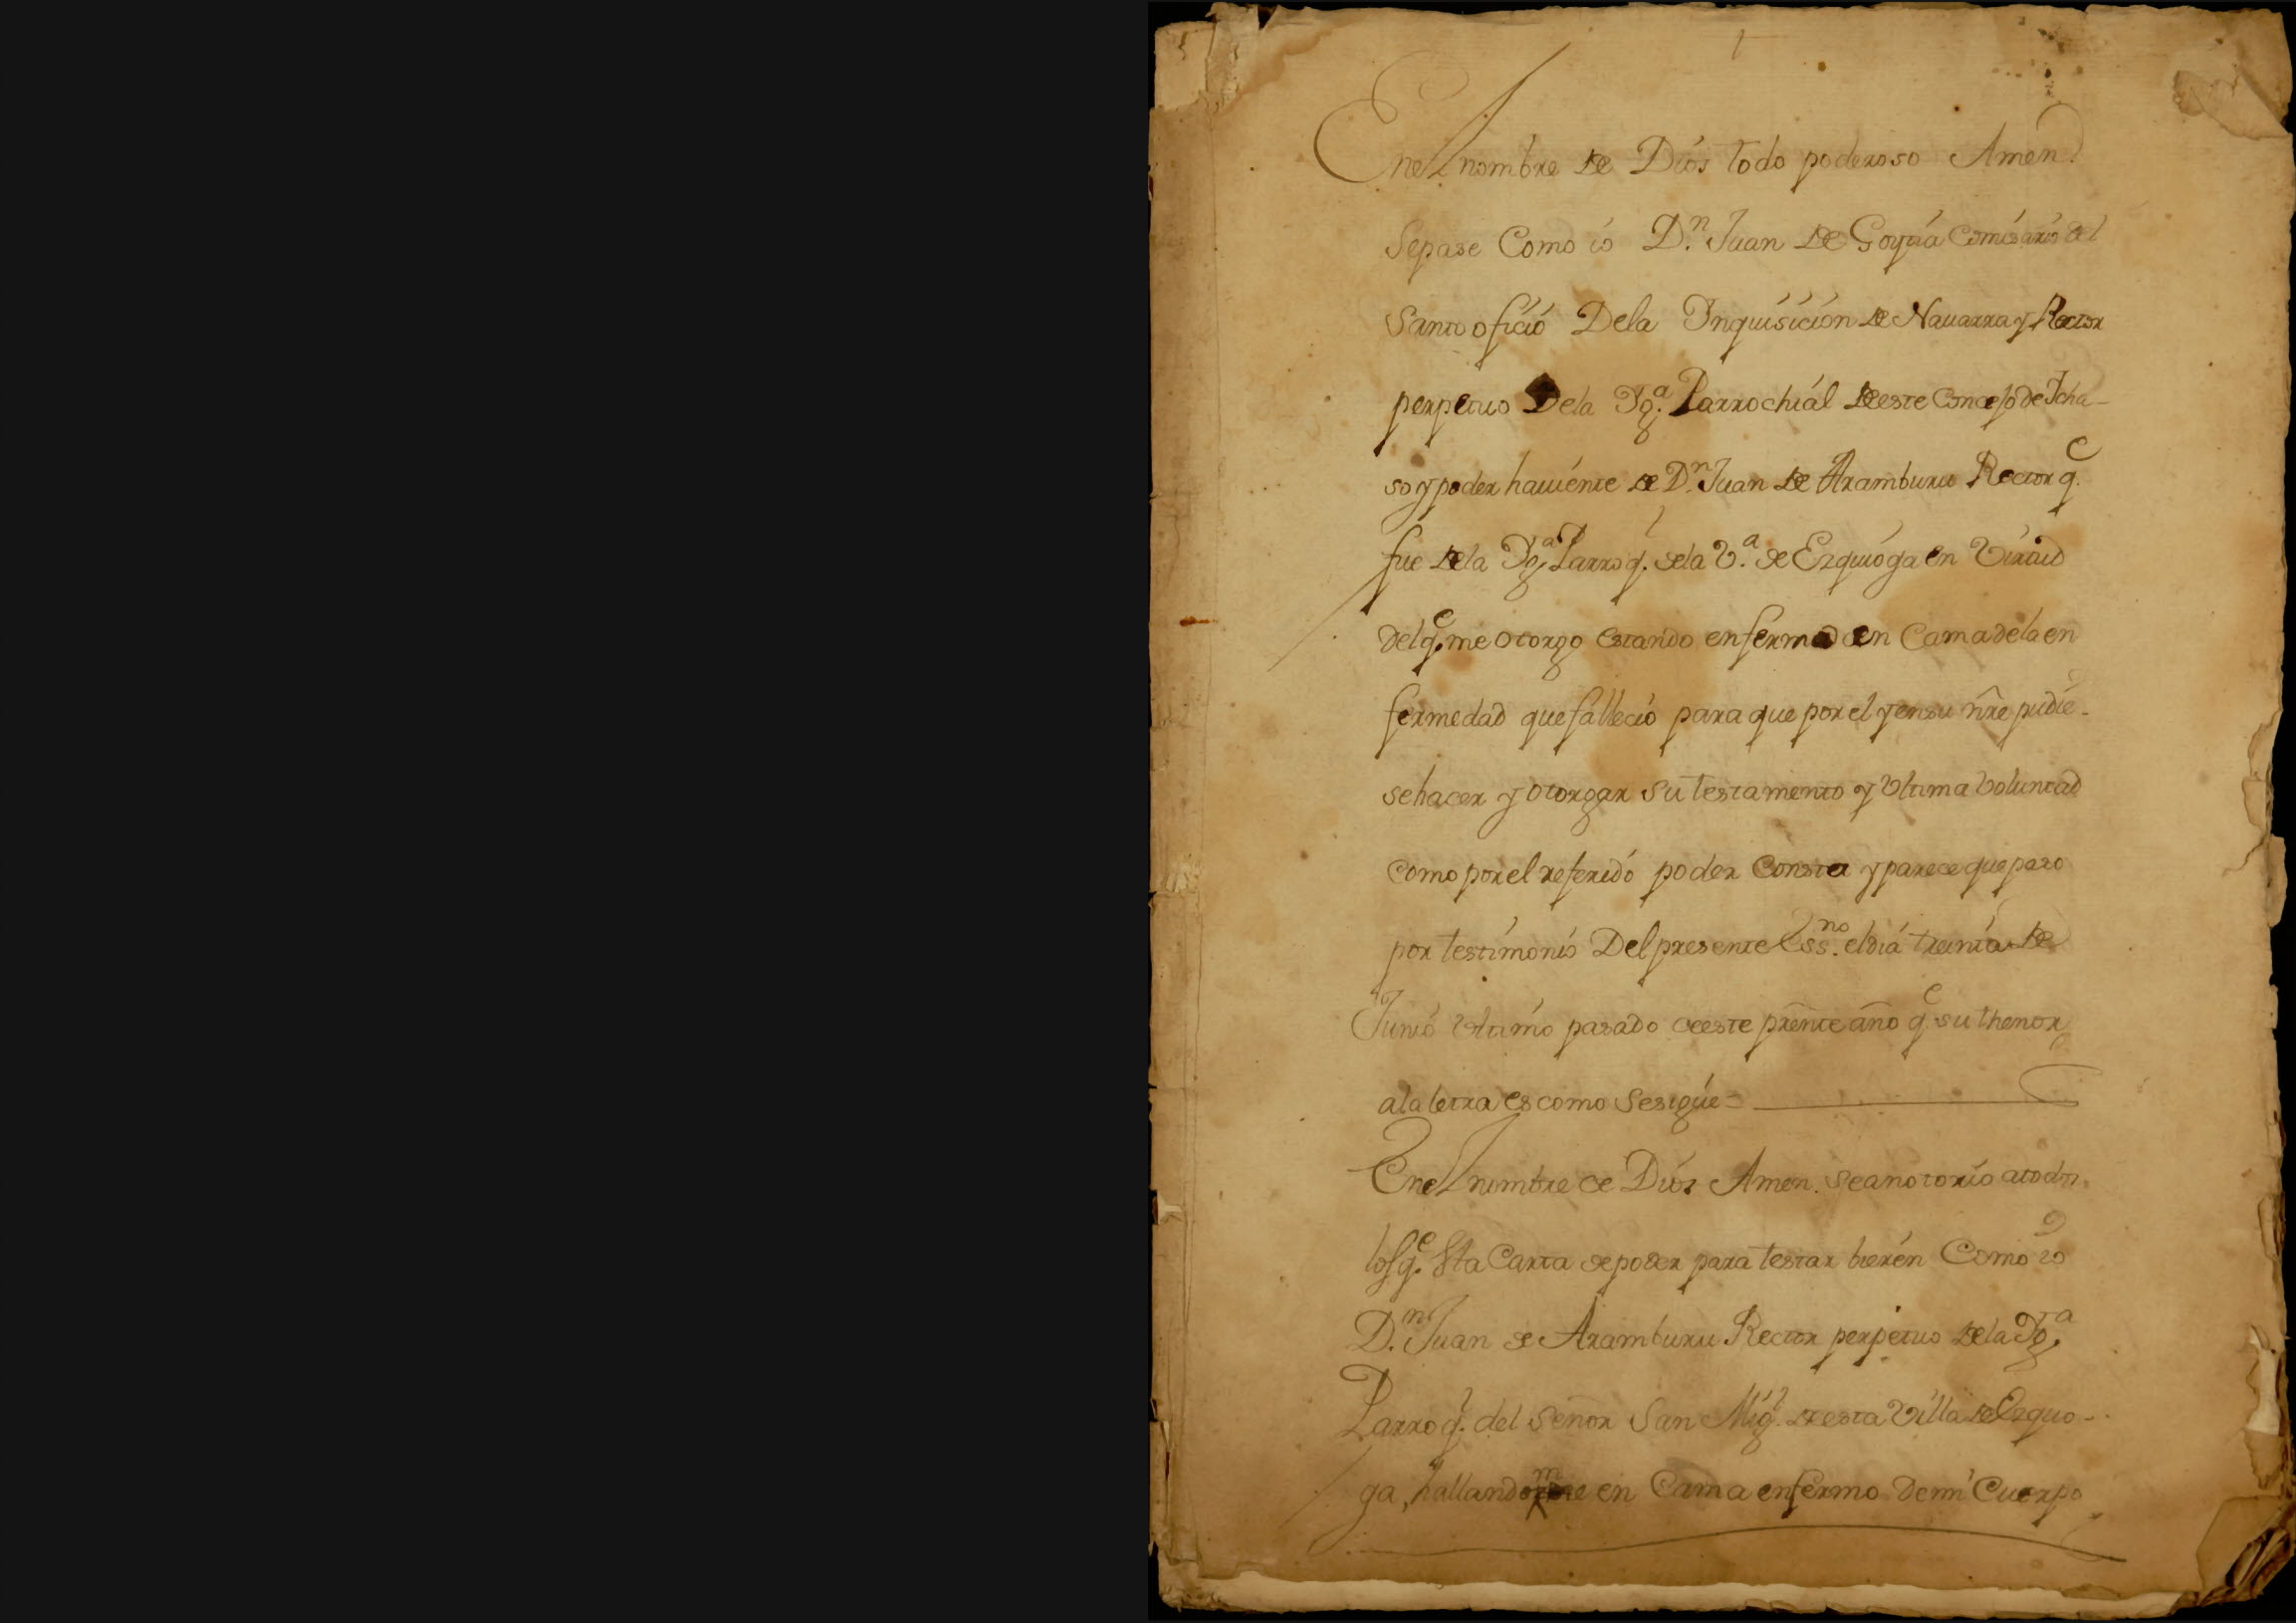 En el nombre de Dios todo poderoso Amen.
Sepase Como io D.n Juan de Goyia Comisario del
Santo oficio Dela Inquisicion de Nauarra y Rector
perpetuo Dela Yg.a Parrochial de este Concejo de Icha-
so y poder hauiente de D.n Juan de Aramburu Rector q.e
fue dela Yg.a Parroq.l dela V.a de Ezquioga en Virtud
del q.e me otorgo estando enfermo en Cama dela en
fermedad que fallecio para que por el y en su nr̃e pudie-
se hacer y otorgar su testamento y Vltima Voluntad
como por el referido poder Consta y parece que paso
por testimonio Del presente Ess.no el dia treinta de
Junio Vltimo pasado de este preñte año q.e su thenor
ala letra es como se sigue=
En el nombre de Dios Amen. sea notorio a todos
los q.e esta Carta de poder para testar bieren Como io
D.n Juan de Aramburu Rector perpetuo dela Yg.a
Parroq.l del Señor San Mig.l de esta Villa de Ezquio-
ga, hallandome en Cama enfermo de mi Cuerpo